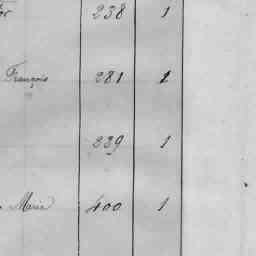 238 1
François 281 1
239 1
Marie 400 1